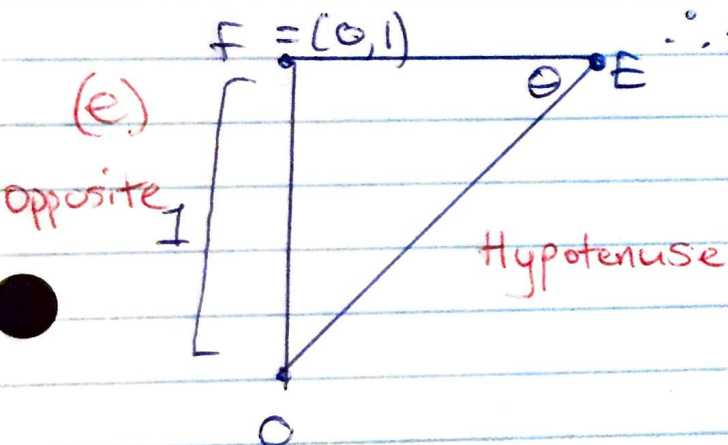 F = (0,1)
∴
(e)
θ
E
Opposite
1
Hypotenuse
O